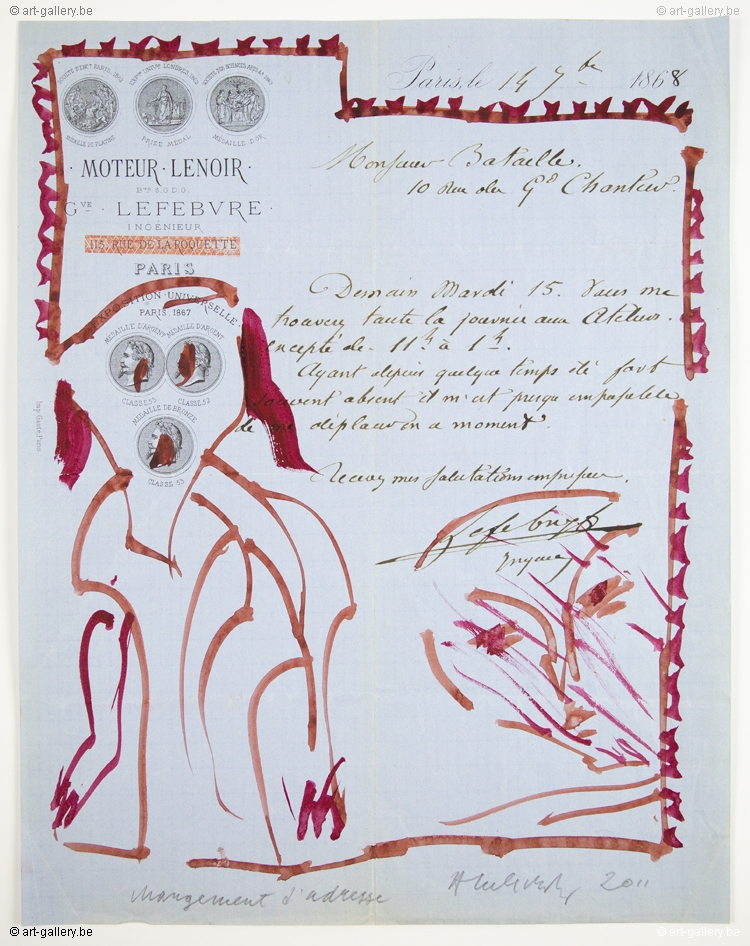 © art-gallery.be
© art-gallery.be
SOCIÉTÉ D'ENCT. PARIS, 1860
MÉDAILLE DE PLATINE
EXPON UNIVLE LONDRES, 1862
PRIZE MEDAL
MÉDAILLE D'OR
Paris, le 14 7bre 1868
· MOTEUR · LENOIR ·
BTÉ S.G.D.G.
GVE · LEFEBVRE ·
INGÉNIEUR
115, RUE DE LA ROQUETTE
PARIS
Monsieur Bataille.
10 Rue des Gds
EXPOSITION · UNIVERSELLE
PARIS, 1867
MÉDAILLE D'ARGENT
MÉDAILLE D'ARGENT
CLASSE 53
CLASSE 53
MÉDAILLE DE BRONZE
CLASSE 53
Imp. Paris
Demain Mardi 15. Vous me
trouvez toute la journée aux Ateliers.
excepté de 11h à 1h.
Ayant depuis quelque temps été fort
souvent absent il m'est presqu impossible
de me déplacer en ce moment.
Recevez mes salutations empressées.
Lefebvre
2011
© art-gallery.be
© art-gallery.be